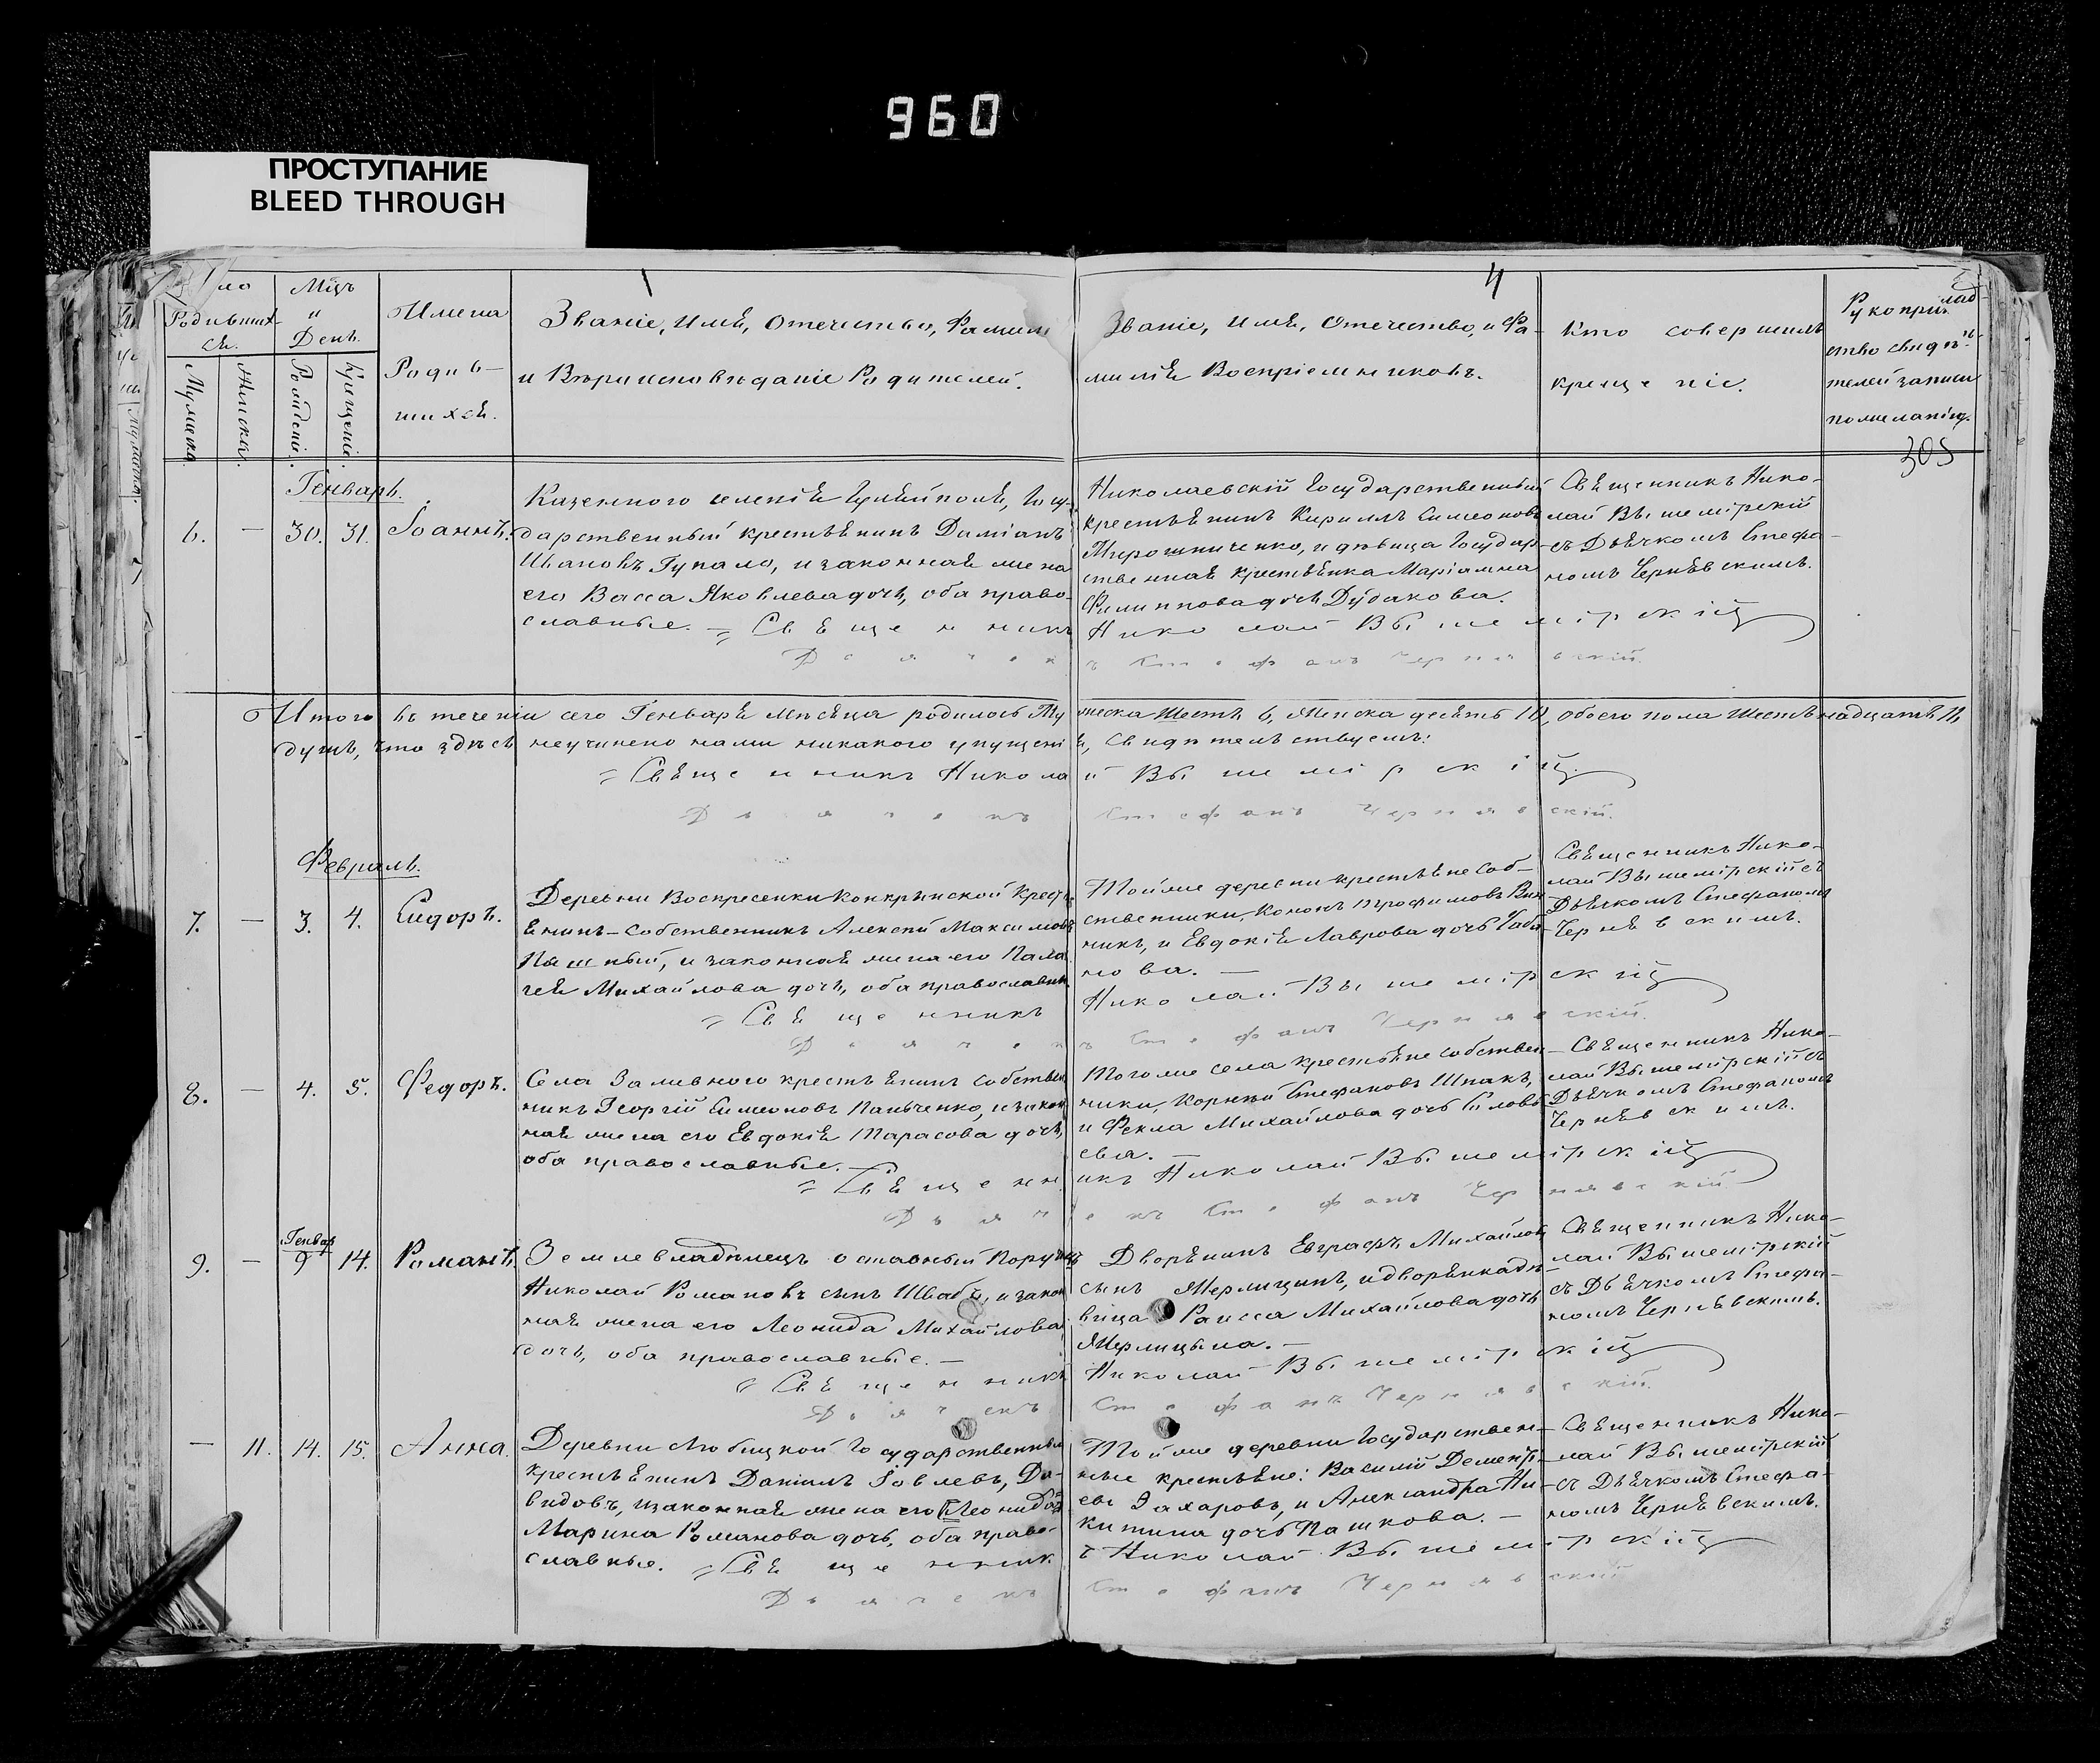 960
ПРОСТУПАНИЕ
BLEED THROUGH
Мцъ
и
День.
Родивших-
ся.
Мужеска.
Женска.
Рожденіе.
Крещеніе.
Имена
Родив-
шихся.
Званіе, имя, отечество, Фамилія
и Вѣроисповѣданіе Родителей.
4
Званіе, имя, отечество, и Фа-
милія Воспріемниковъ.
Кто совершилъ
крещеніе.
Рукоприклад-
ство свидѣ-
телей записи
по желанію.
305
Генварь.
6. — 30. 31. Іоаннъ.
Казеннаго селенія Гуляйполя, Госу-
дарственный крестьянинъ Даміанъ
Ивановъ Гупало, и законная жена
его Васса Яковлева дочь, оба право-
славные. — Священникъ
Николаевскій Государственный
крестьянинъ Кириллъ Симеоновъ
Мирошниченко, и дѣвица Государ-
ственная крестьянка Маріамна
Филиппова дочь Дудакова.
Николай Вышемірскій
Дьячекъ Стефанъ Чернявскій.
Священникъ Нико-
лай Вышемірскій
съ Дьячкомъ Стефа-
номъ Чернявскимъ.
Итого въ теченіи сего Генваря мѣсяца родилось Мужеска Шесть 6, Женска десять 10, обоего пола шестьнадцать 16
душъ, что здѣсь неучинено нами никакого упущенія, свидѣтельствуемъ:
Священникъ Николай Вышемірскій.
Дьячекъ Стефанъ Чернявскій.
Февраль.
7. — 3. 4. Сидоръ.
Деревни Воскресенки Конкрынской Кресть-
янинъ-собственникъ Алексѣй Максимовъ
и законная жена его Пела-
гея Михайлова дочь, оба православные.
Священникъ
Тойже деревни крестьяне соб-
ственники, Кононъ Трофимовъ
никъ, и Евдокія Лаврова дочь
нова. —
Николай Вышемірскій
Дьячекъ Стефанъ Чернявскій.
Священникъ Нико-
лай Вышемірскій съ
Дьячкомъ Стефаномъ
Чернявскимъ.
8. — 4. 5. Федоръ.
Села Заливного крестьянинъ собствен-
никъ Георгій Симеоновъ Панченко, и закон-
ная жена его Евдокія Тарасова дочь,
оба православные. —
Тогоже села крестьяне собствен-
ники, Корнѣй Стефановъ Шпакъ,
и Фекла Михайлова дочь
ева. —
Священникъ Николай Вышемірскій
Дьячекъ Стефанъ Чернявскій
Священникъ Нико-
лай Вышемірскій съ
Дьячкомъ Стефаномъ
Чернявскимъ.
9. — Генвар 9 14. Романъ.
Землевладѣлецъ отставный Поручикъ
Николай Романовъ сынъ Швабъ, и закон-
ная жена его Леонида Михайлова
дочь, оба православные. —
Священникъ
Дворянинъ Евграфъ Михайловъ
сынъ Мерлицынъ, и дворянка дѣ-
вица Раисса Михайлова дочь
Мерлицына. —
Николай Вышемірскій
Дьячекъ Стефанъ Чернявскій.
Священникъ Нико-
лай Вышемірскій
съ Дьячкомъ Стефа-
номъ Чернявскимъ.
— 11. 14. 15. Анна.
Деревни Любицкой Государственный
крестьянинъ Даніилъ Іовлевъ, Да-
видовъ, и законная жена его
Марина Романова дочь, оба право-
славные. Священник
Тойже деревни Государствен-
ные крестьяне: Василій Дементі-
евъ Захаровъ, и Александра Ни-
китина дочь Пашкова. —
ъ Николай Вышемірскій
Дьячекъ Стефанъ Чернявскій
Священникъ Нико-
лай Вышемірскій
съ Дьячкомъ Стефа-
номъ Чернявскимъ.